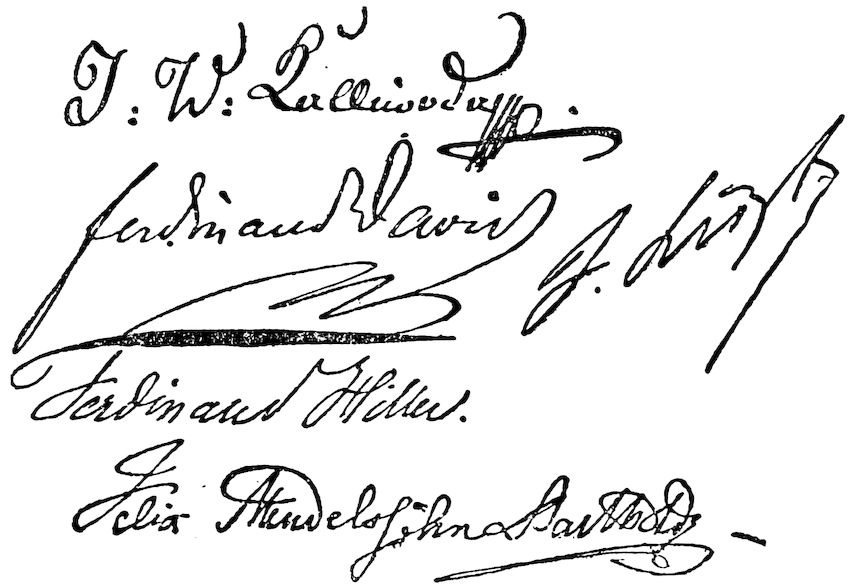 J. W. Kalliwoda
Ferdinand David
F. Liszt
Ferdinand Hiller.
Felix Mendelssohn Bartholdy